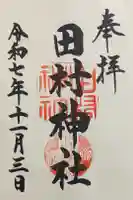 奉拝
田村神社
令和七年十一月三日